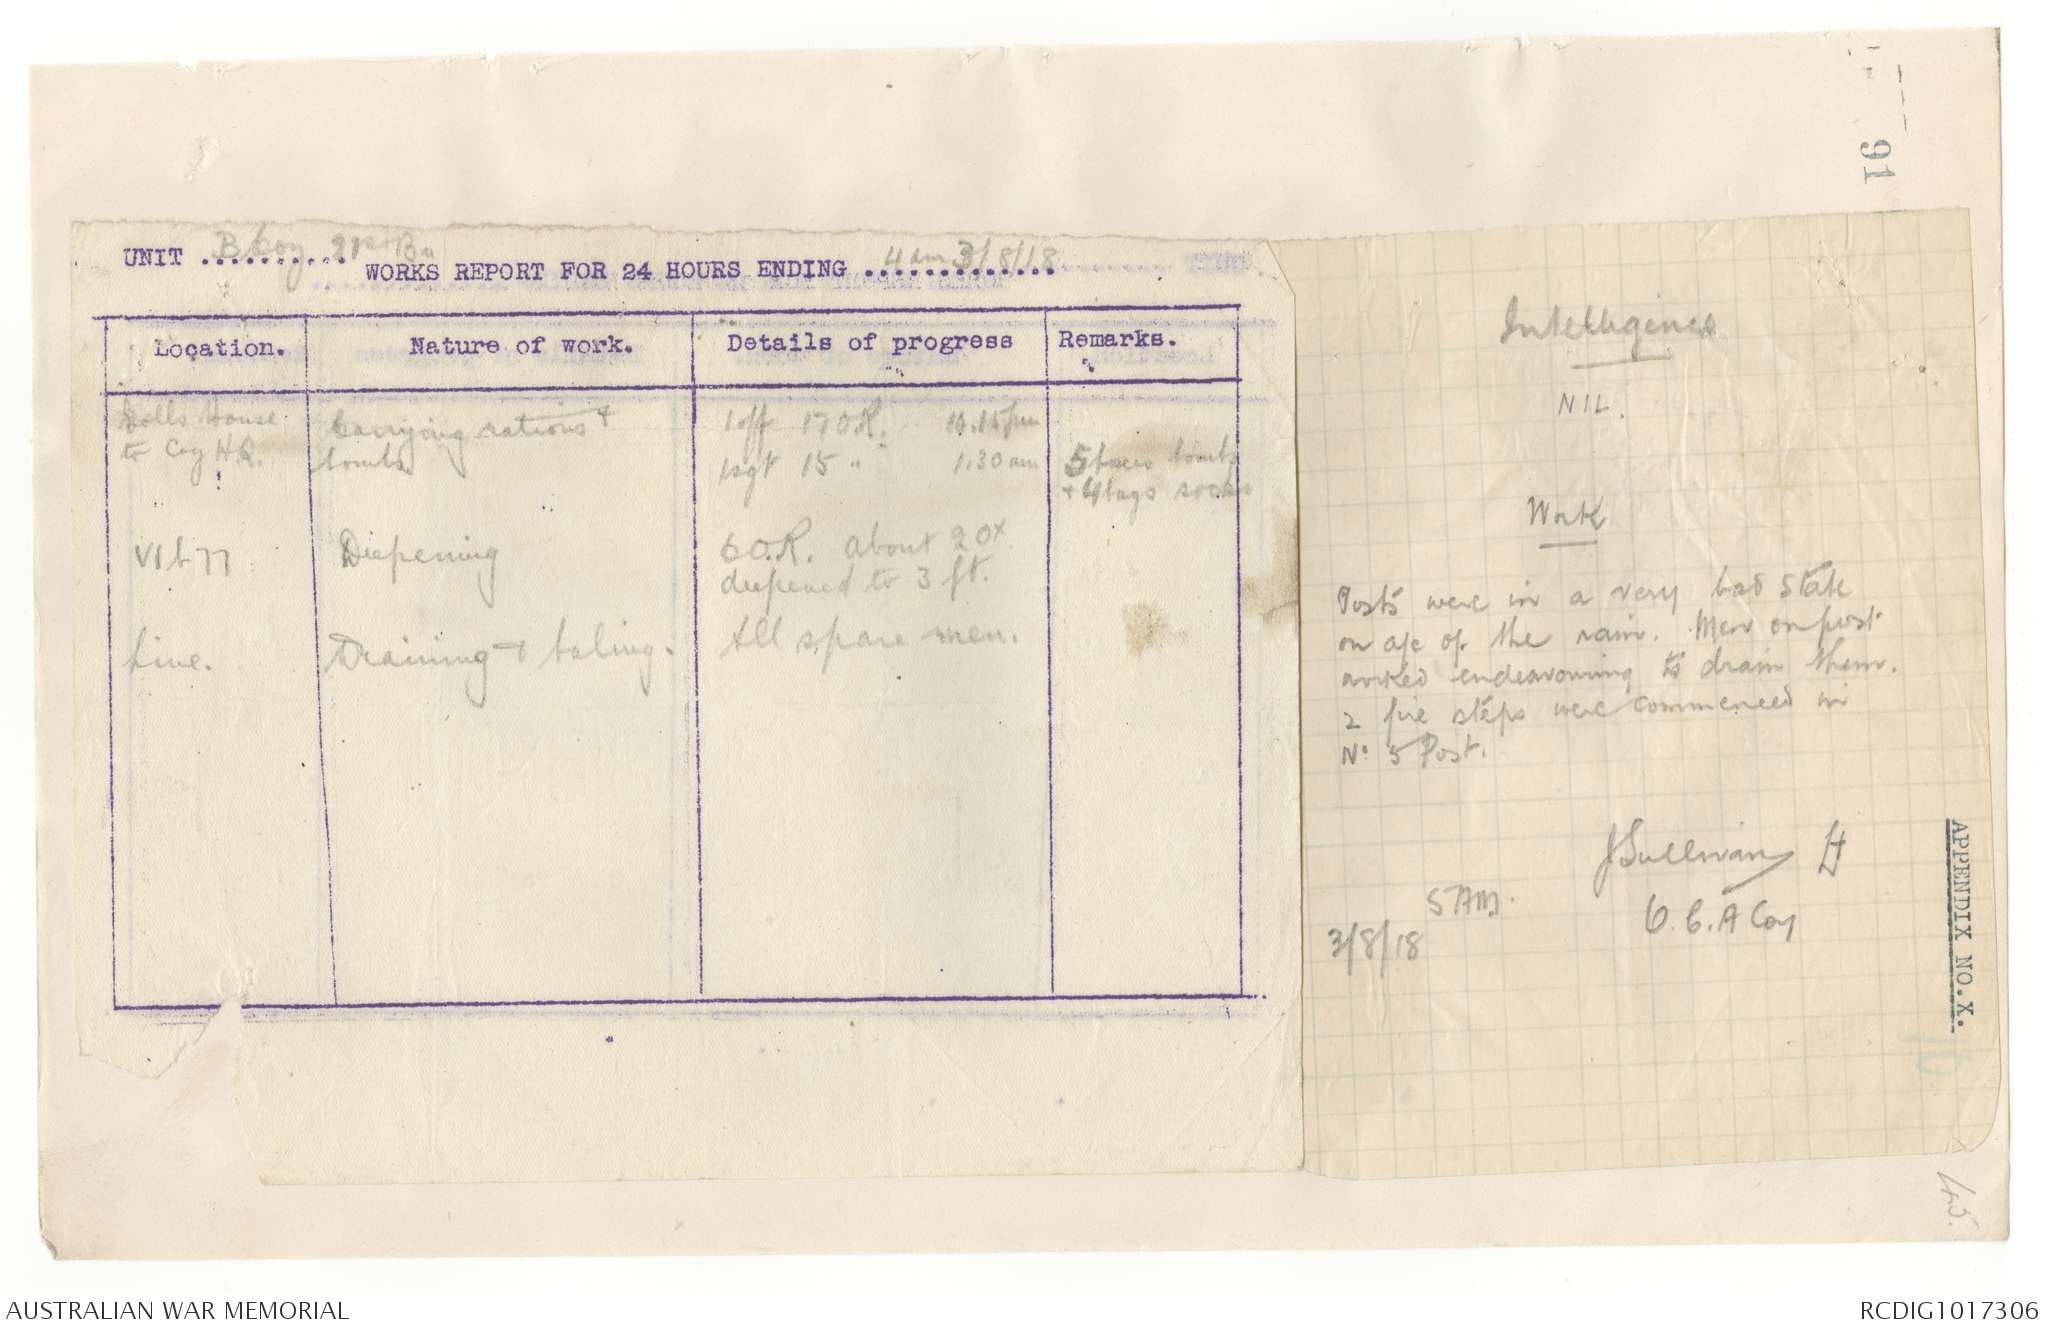 91
UNIT B Coy 21st Bn WORKS REPORT FOR 24 HOURS ENDING 4 am 3/8/18
Location. Nature of work. Details of progress Remarks.
Dolls House Carrying rations + 1 off 17 O.R. 10.15 pm
to Coy H.Q. bombs 1 sgt 15 " 1.30 am 5 boxes bombs
+ 4 bags socks
V1b77 Deepening 6 O.R. about 20x
deepened to 3 ft.
Line. Draining + baling. All spare men.
Intelligence
NIL.
Work
Posts were in a very bad state
on a/c of the rain. Men on post
worked endeavouring to drain them.
2 fire steps were commenced in
No 5 Post.
J Sullivan Lt
O.C. A Coy
5 AM.
3/8/18
APPENDIX NO.X.
45.
AUSTRALIAN WAR MEMORIAL
RCDIG1017306